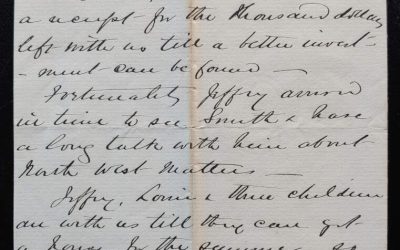 a receipt for the thousand dollars
left with us till a better invest-
-ment can be found —
Fortunately Jeffry arrived
in time to see Smith & have
a long talk with him about
North West matters —
Jeffry, Louie & three children
are with us till they can get
a house for the summer — so